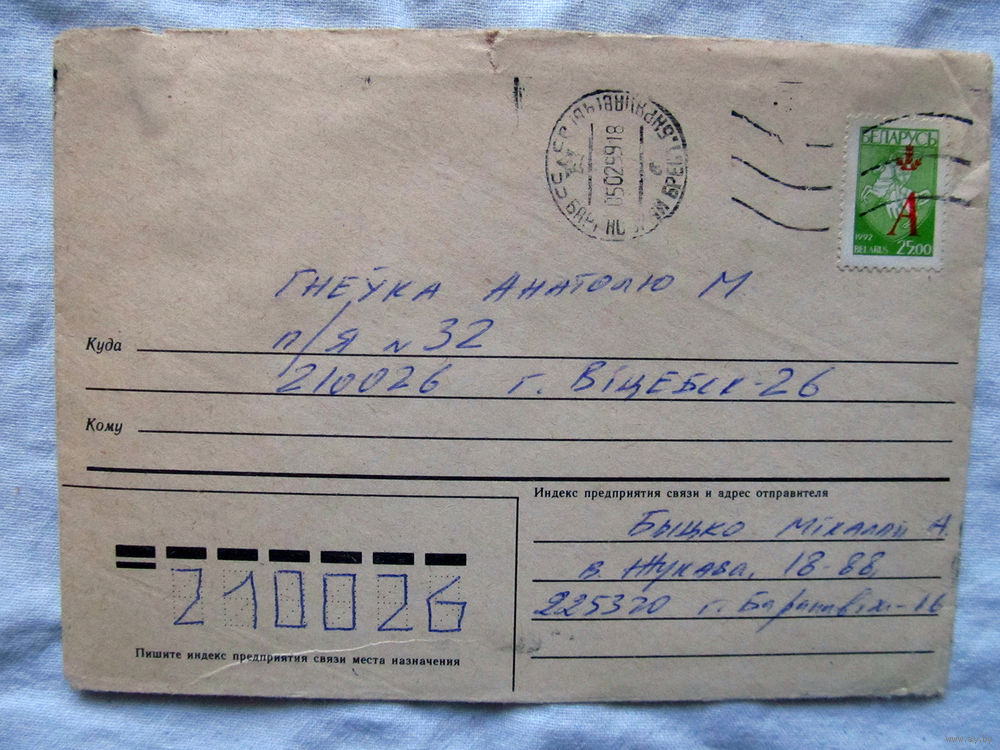 БЕЛАРУСЬ
А
1992
BELARUS 25.00
05029918
ГНЕЎКА АНАТОЛЮ М
Куда п/я N 32
210026 г. ВІЦЕБСК-26
Кому
Индекс предприятия связи и адрес отправителя
Быцько Мікалай А.
в. Жукава, 18-88,
225320 г. Баранавічы-16
210026
Пишите индекс предприятия связи места назначения